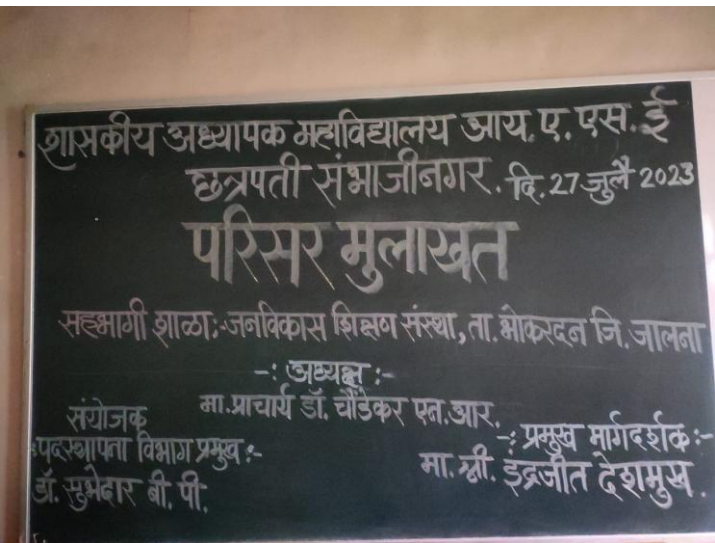 शासकीय अध्यापक महाविद्यालय आय. ए. एस. ई
छत्रपती संभाजीनगर. दि. 27 जुलै 2023
परिसर मुलाखत
सहभागी शाळा:- जनविकास शिक्षण संस्था, ता. भोकरदन जि. जालना
-: अध्यक्ष :-
मा. प्राचार्य डॉ. चौंडेकर एन. आर.
संयोजक
पदस्थापना विभाग प्रमुख :-
डॉ. सुभेदार बी. पी.
-: प्रमुख मार्गदर्शक :-
मा. श्री. इंद्रजीत देशमुख.